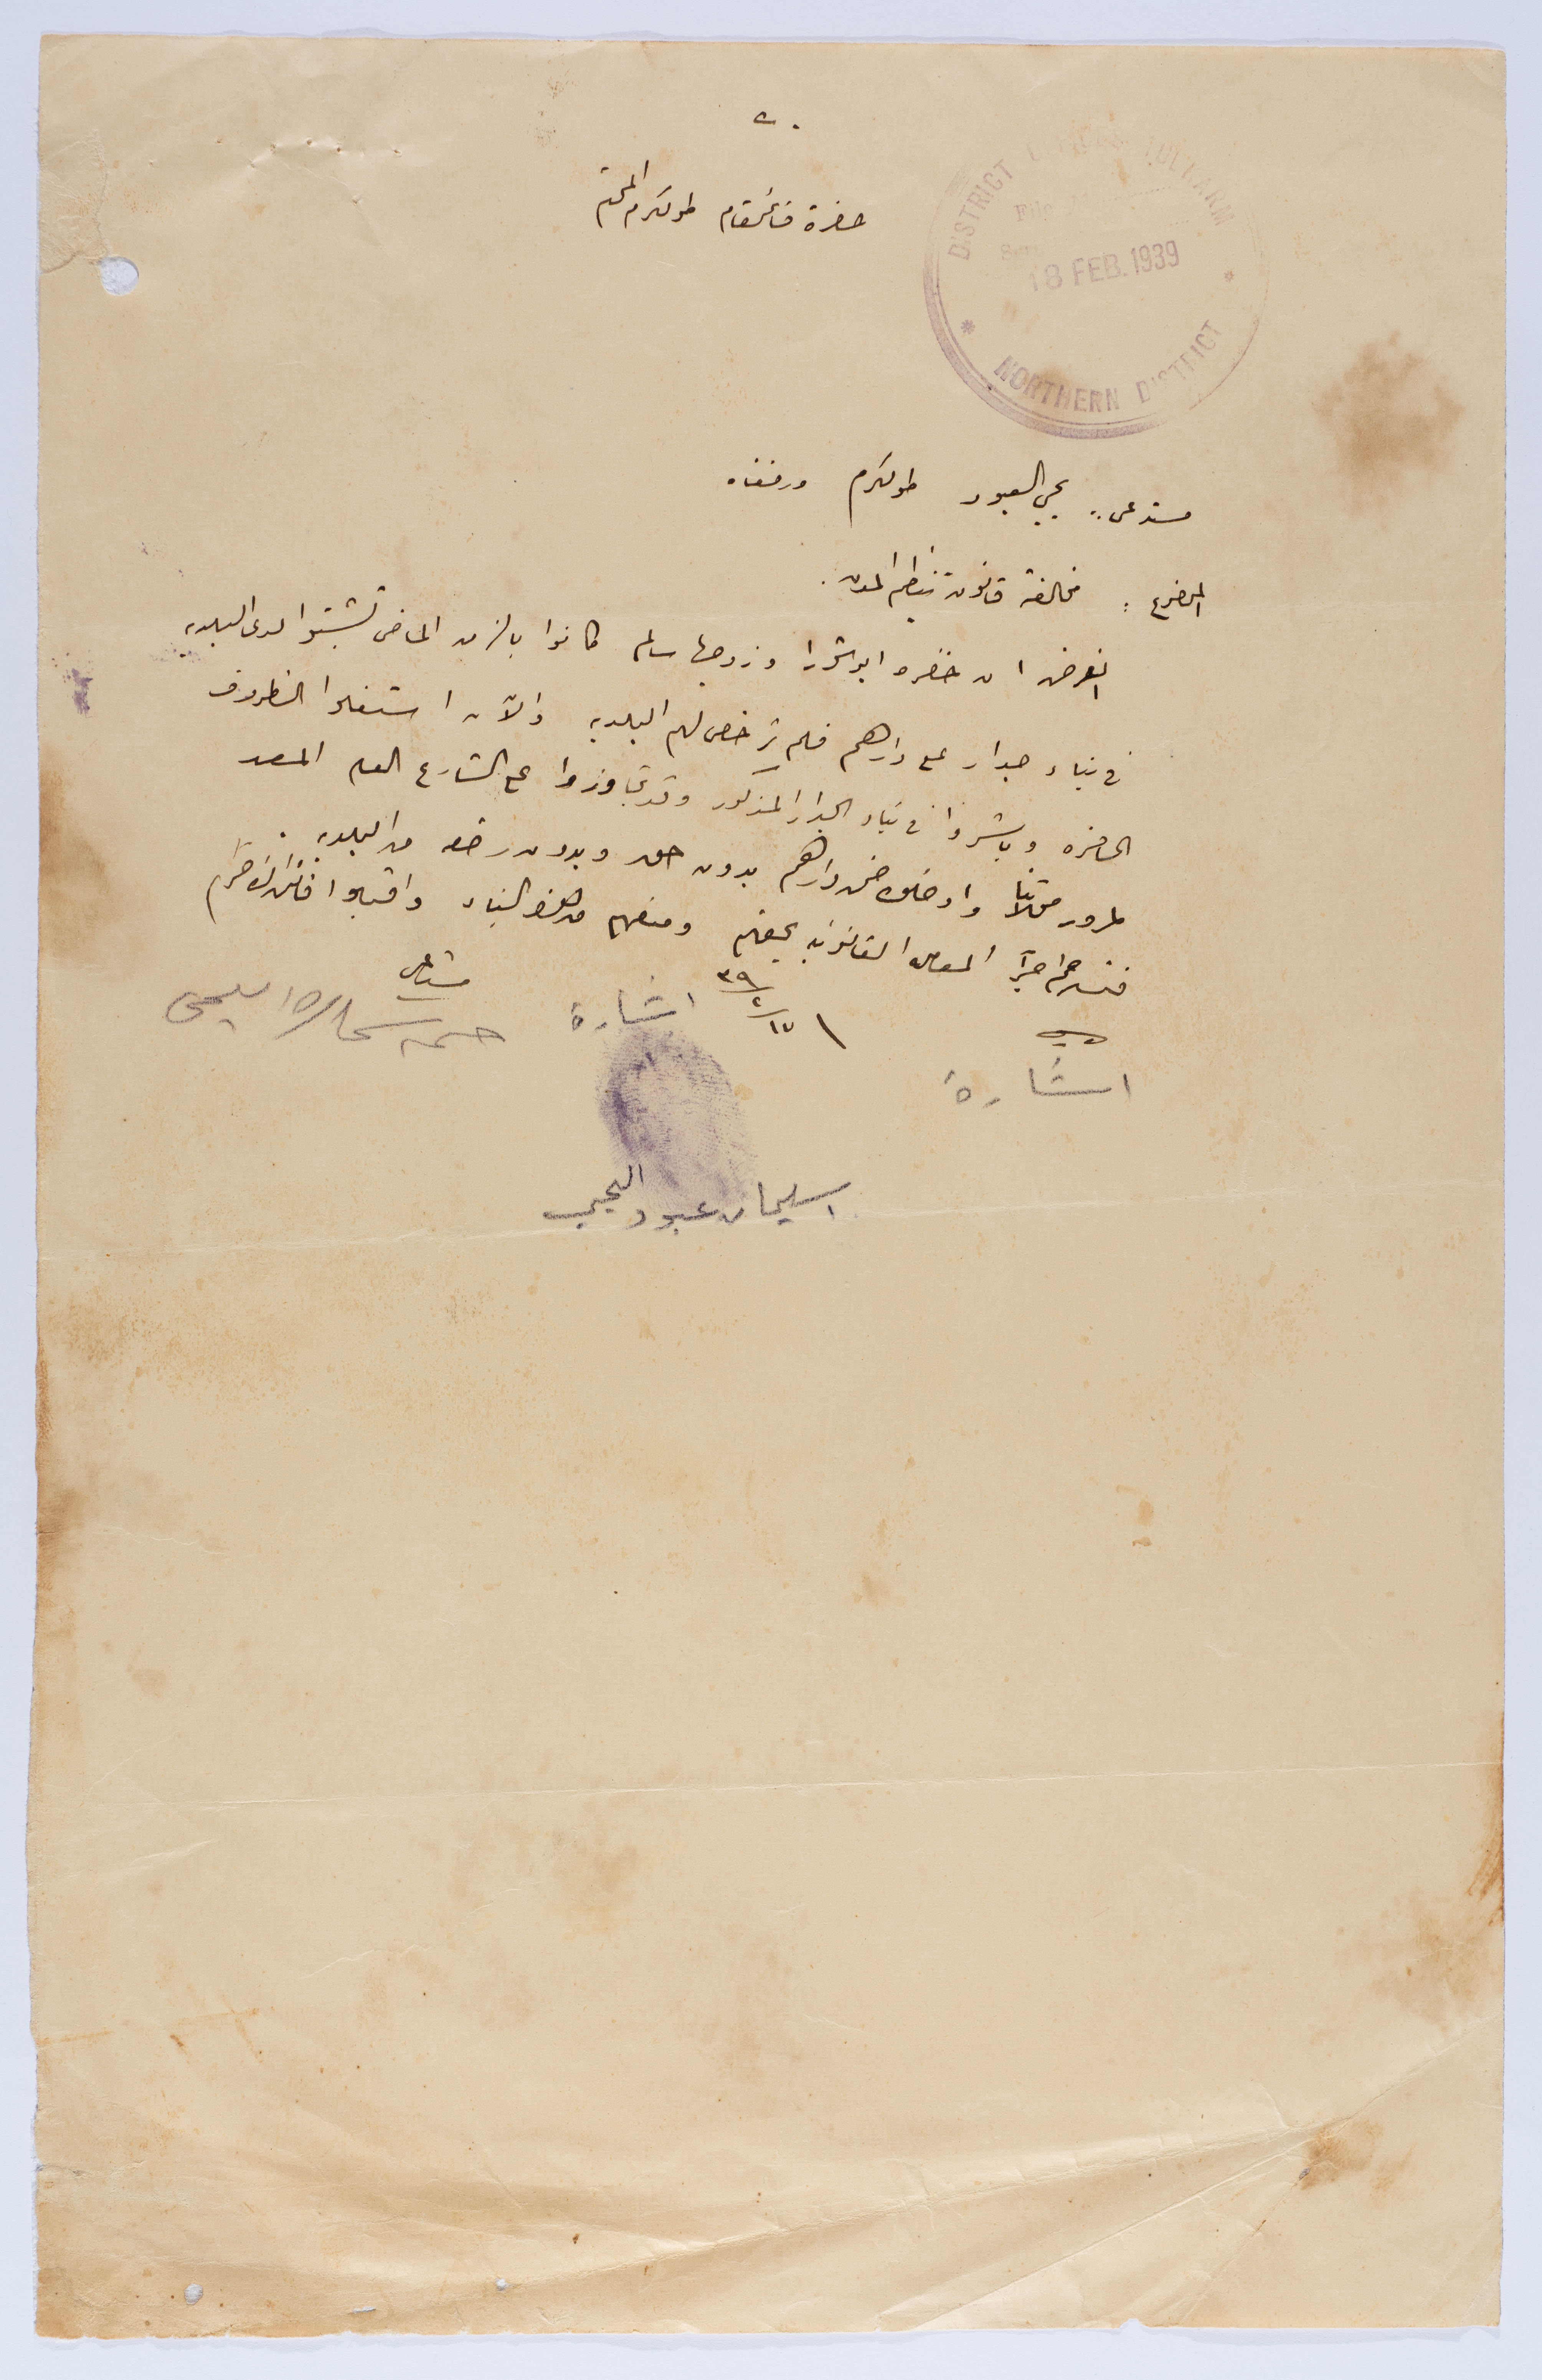 حضرة قائمقام طولكرم المحترم
DISTRICT OFFICES TULKARM
18 FEB. 1939
NORTHERN DISTRICT
مستدعي: يحيى العبود طولكرم ورفقاه
الموضوع: مخالفة قانون تنظيم المدن.
نعرض ان خضره ابو شورا وزوجها سالم كانوا بالزمن الماضي تشبثوا لدى البلديه
في بناء جدار على دارهم فلم ترخص لهم البلديه والآن استغلوا الظروف
الحاضره وباشروا في بناء الجدار المذكور وقد تجاوزوا على الشارع العام المعد
لمرور محلاتنا وادخلوه ضمن دارهم بدون حق وبدون رخصه من البلديه.
فنسترحم اجراء المعامله القانونيه بحقهم ومنعهم من هذا البناء واقبلوا فائق الاحترام
١٧/٢/٣٩
مستدعي
اشارة
اشارة
اسليمان عبود اليحيى